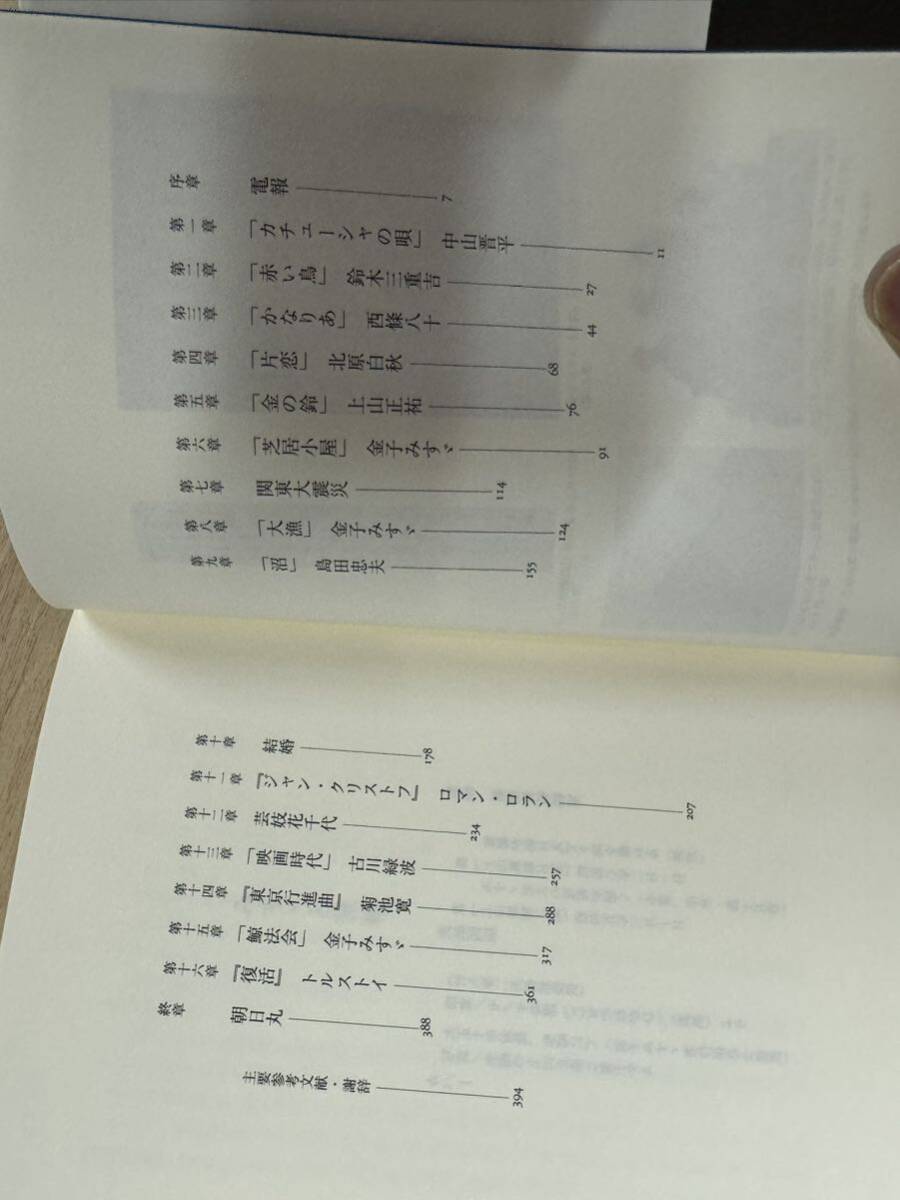 序章 電報 7
第一章 「カチューシャの唄」 中山晋平 11
第二章 「赤い鳥」 鈴木三重吉 27
第三章 「かなりあ」 西條八十 44
第四章 「片恋」 北原白秋 68
第五章 「金の鈴」 上山正祐 76
第六章 「芝居小屋」 金子みすゞ 91
第七章 関東大震災 114
第八章 「大漁」 金子みすゞ 124
第九章 「沼」 島田忠夫 155
第十章 結婚 178
第十一章 『ジャン・クリストフ』 ロマン・ロラン 207
第十二章 芸妓花千代 234
第十三章 「映画時代」 古川緑波 257
第十四章 『東京行進曲』 菊池寛 288
第十五章 「鯨法会」 金子みすゞ 317
第十六章 『復活』 トルストイ 361
終章 朝日丸 388
主要参考文献・謝辞 394